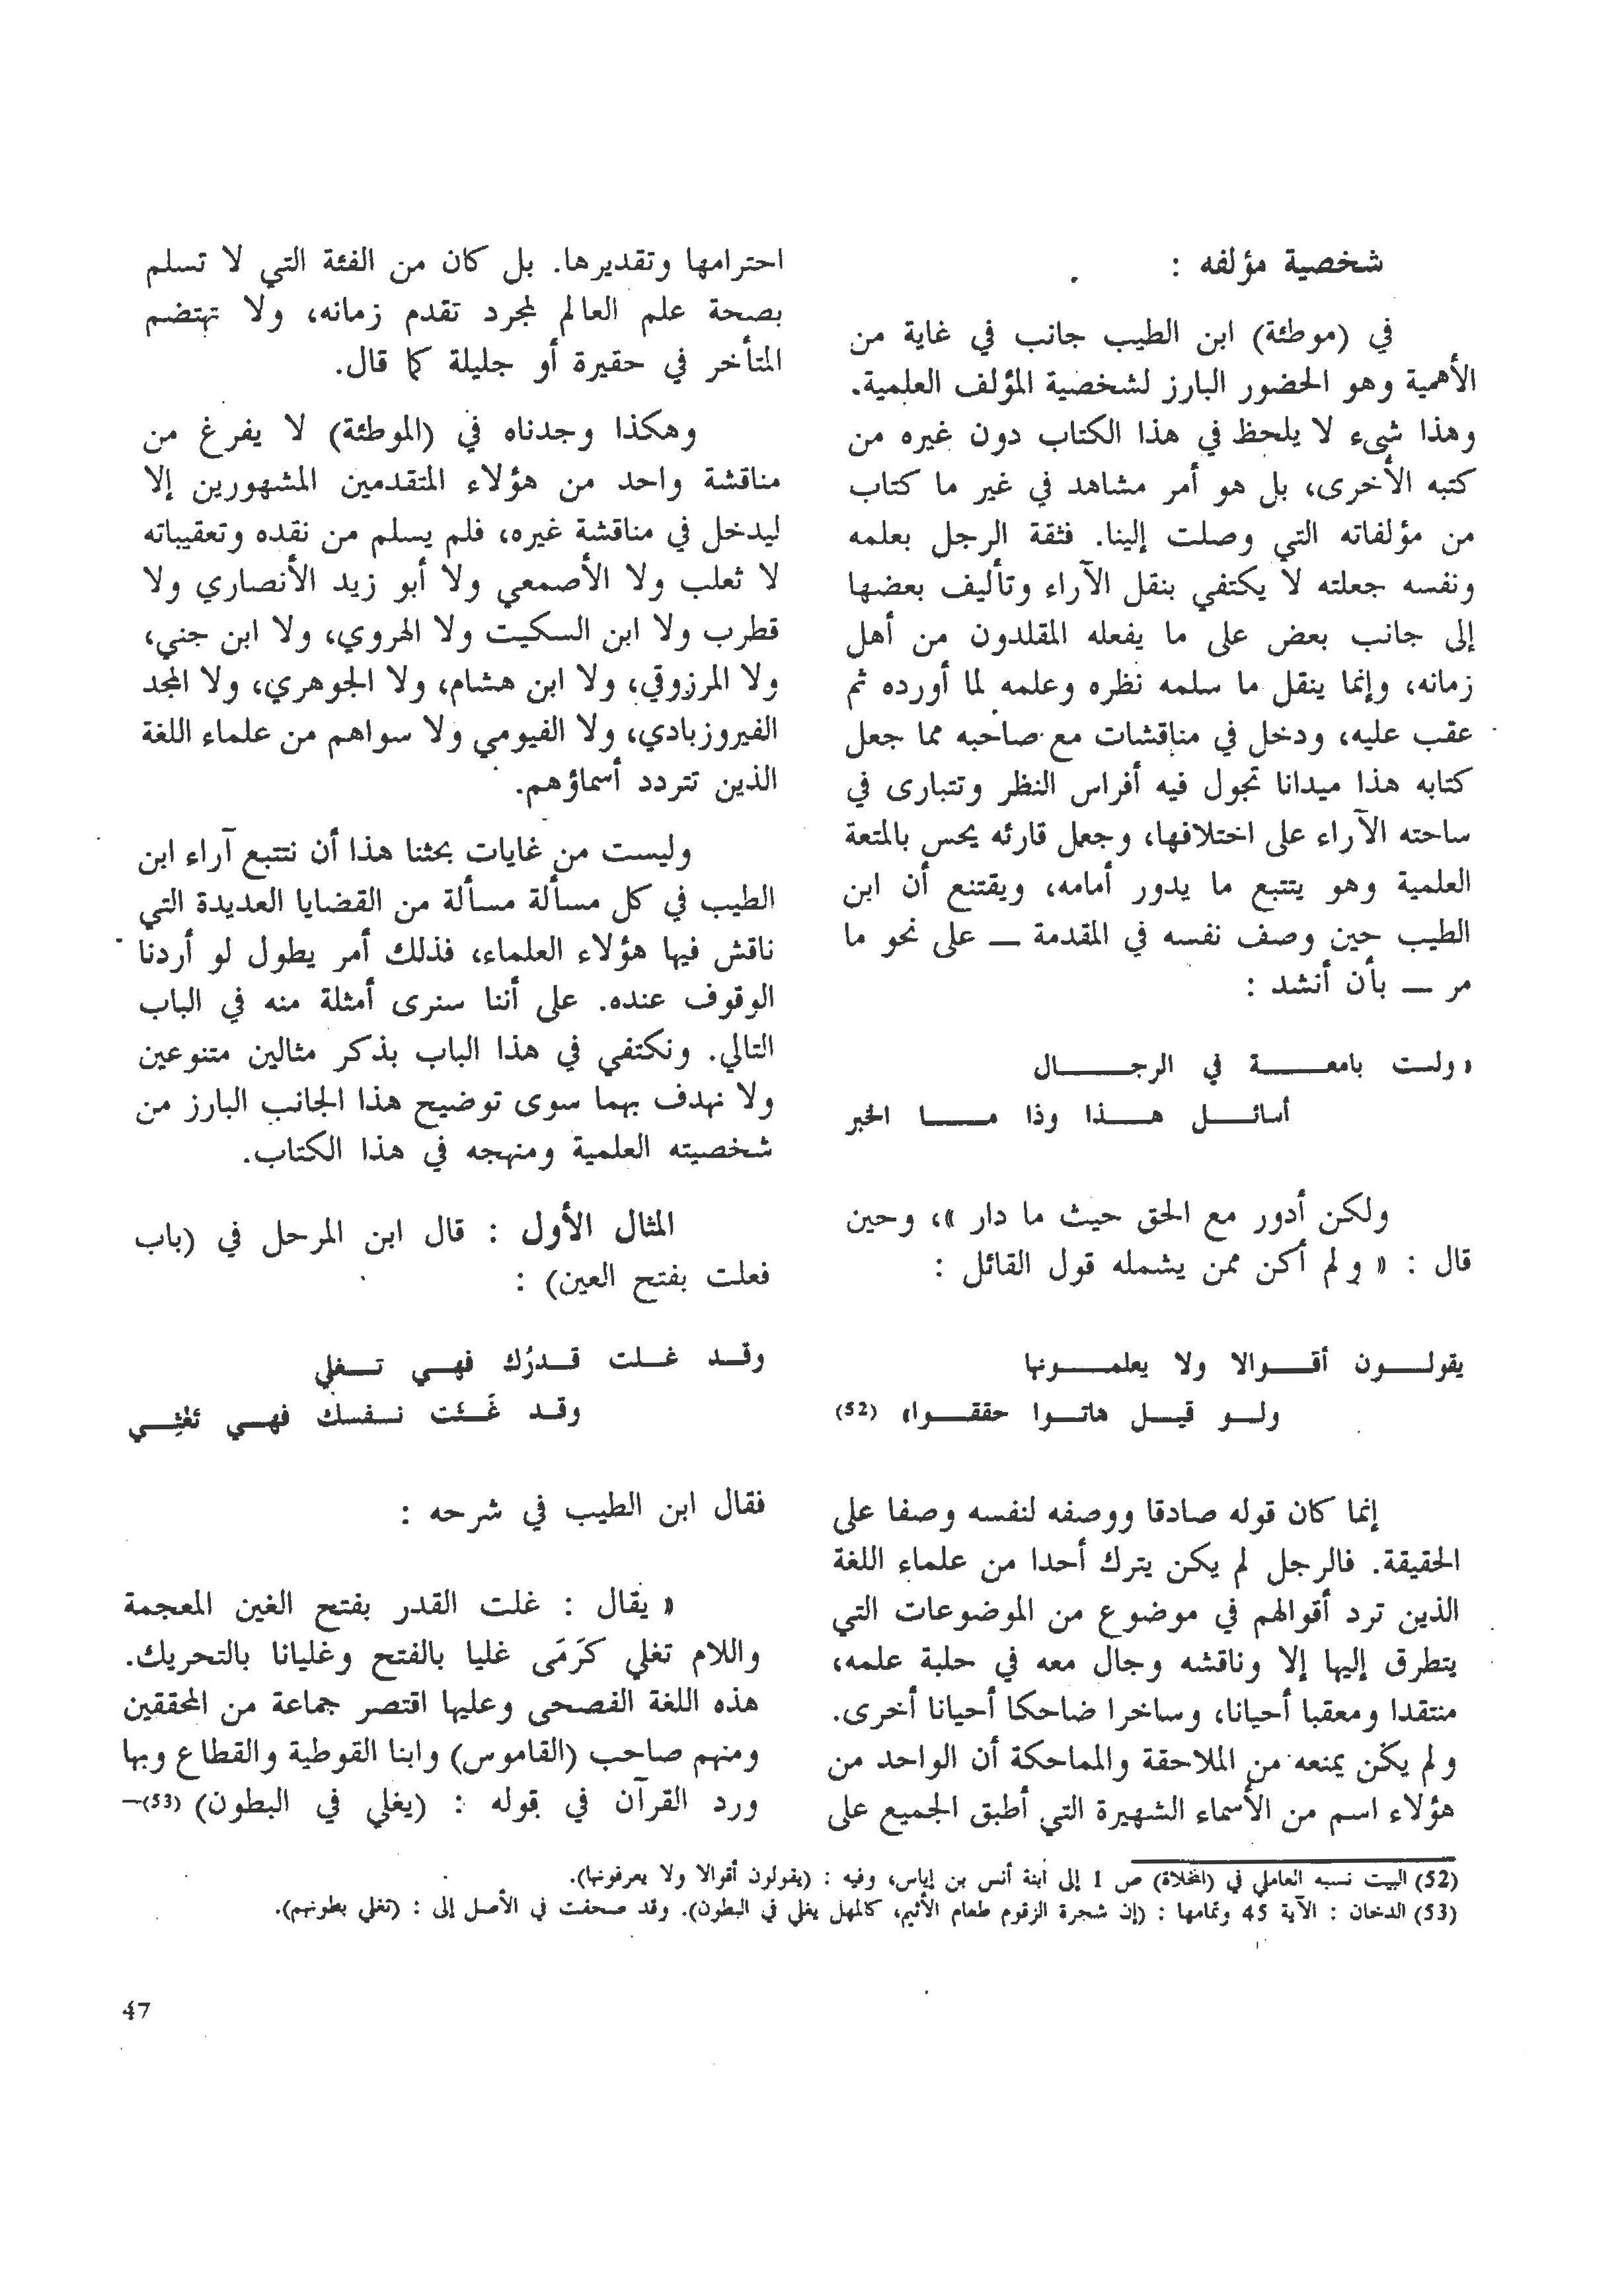 شخصية مؤلفه :
في (موطئة) ابن الطيب جانب في غاية من
الأهمية وهو الحضور البارز لشخصية المؤلف العلمية.
وهذا شيء لا يلحظ في هذا الكتاب دون غيره من
كتبه الأخرى، بل هو أمر مشاهد في غير ما كتاب
من مؤلفاته التي وصلت إلينا. فثقة الرجل بعلمه
ونفسه جعلته لا يكتفي بنقل الآراء وتأليف بعضها
إلى جانب بعض على ما يفعله المقلدون من أهل
زمانه، وإنما ينقل ما سلمه نظره وعلمه لما أورده ثم
عقب عليه، ودخل في مناقشات مع صاحبه مما جعل
كتابه هذا ميدانا تجول فيه أفراس النظر وتتبارى في
ساحته الآراء على اختلافها، وجعل قارئه يحس بالمتعة
العلمية وهو يتتبع ما يدور أمامه، ويقتنع أن ابن
الطيب حين وصف نفسه في المقدمة — على نحو ما
مر — بأن أنشد :
« ولست بامعـــة في الرجـــال
أسائـــل هـــذا وذا مـــا الخبر
ولكن أدور مع الحق حيث ما دار »، وحين
قال : « ولم أكن ممن يشمله قول القائل :
يقولـــون أقـــوالا ولا يعلمـــونها
ولـــو قيـــل هاتـــوا حققـــوا» (52)
إنما كان قوله صادقا ووصفه لنفسه وصفا على
الحقيقة. فالرجل لم يكن يترك أحدا من علماء اللغة
الذين ترد أقوالهم في موضوع من الموضوعات التي
يتطرق إليها إلا وناقشه وجال معه في حلبة علمه،
منتقدا ومعقبا أحيانا، وساخرا ضاحكا أحيانا أخرى.
ولم يكن يمنعه من الملاحقة والمماحكة أن الواحد من
هؤلاء اسم من الأسماء الشهيرة التي أطبق الجميع على
احترامها وتقديرها. بل كان من الفئة التي لا تسلم
بصحة علم العالم لمجرد تقدم زمانه، ولا تهتضم
المتأخر في حقيرة أو جليلة كما قال.
وهكذا وجدناه في (الموطئة) لا يفرغ من
مناقشة واحد من هؤلاء المتقدمين المشهورين إلا
ليدخل في مناقشة غيره، فلم يسلم من نقده وتعقيباته
لا ثعلب ولا الأصمعي ولا أبو زيد الأنصاري ولا
قطرب ولا ابن السكيت ولا الهروي، ولا ابن جني،
ولا المرزوقي، ولا ابن هشام، ولا الجوهري، ولا المجد
الفيروزبادي، ولا الفيومي ولا سواهم من علماء اللغة
الذين تتردد أسماؤهم.
وليست من غايات بحثنا هذا أن نتتبع آراء ابن
الطيب في كل مسألة مسألة من القضايا العديدة التي
ناقش فيها هؤلاء العلماء، فذلك أمر يطول لو أردنا
الوقوف عنده. على أننا سنرى أمثلة منه في الباب
التالي. ونكتفي في هذا الباب بذكر مثالين متنوعين
ولا نهدف بهما سوى توضيح هذا الجانب البارز من
شخصيته العلمية ومنهجه في هذا الكتاب.
المثال الأول : قال ابن المرحل في (باب
فعلت بفتح العين) :
وقـــد غـــلت قـــدرُك فهـــي تـــغلي
وقـــد غَـــثَت نـــفسك فهـــي تَغْثِـــي
فقال ابن الطيب في شرحه :
« يقال : غلت القدر بفتح الغين المعجمة
واللام تغلي كَرَمَى غليا بالفتح وغليانا بالتحريك.
هذه اللغة الفصحى وعليها اقتصر جماعة من المحققين
ومنهم صاحب (القاموس) وابنا القوطية والقطاع وبها
ورد القرآن في قوله : (يغلي في البطون) (53)—
(52) البيت نسبه العاملي في (المخلاة) ص 1 إلى ابنة أنس بن إياس، وفيه : (يقولون أقوالا ولا يعرفونها).
(53) الدخان : الآية 45 وتمامها : (إن شجرة الزقوم طعام الأثيم، كالمهل يغلي في البطون). وقد صحفت في الأصل إلى : (تغلي بطونهم).
47